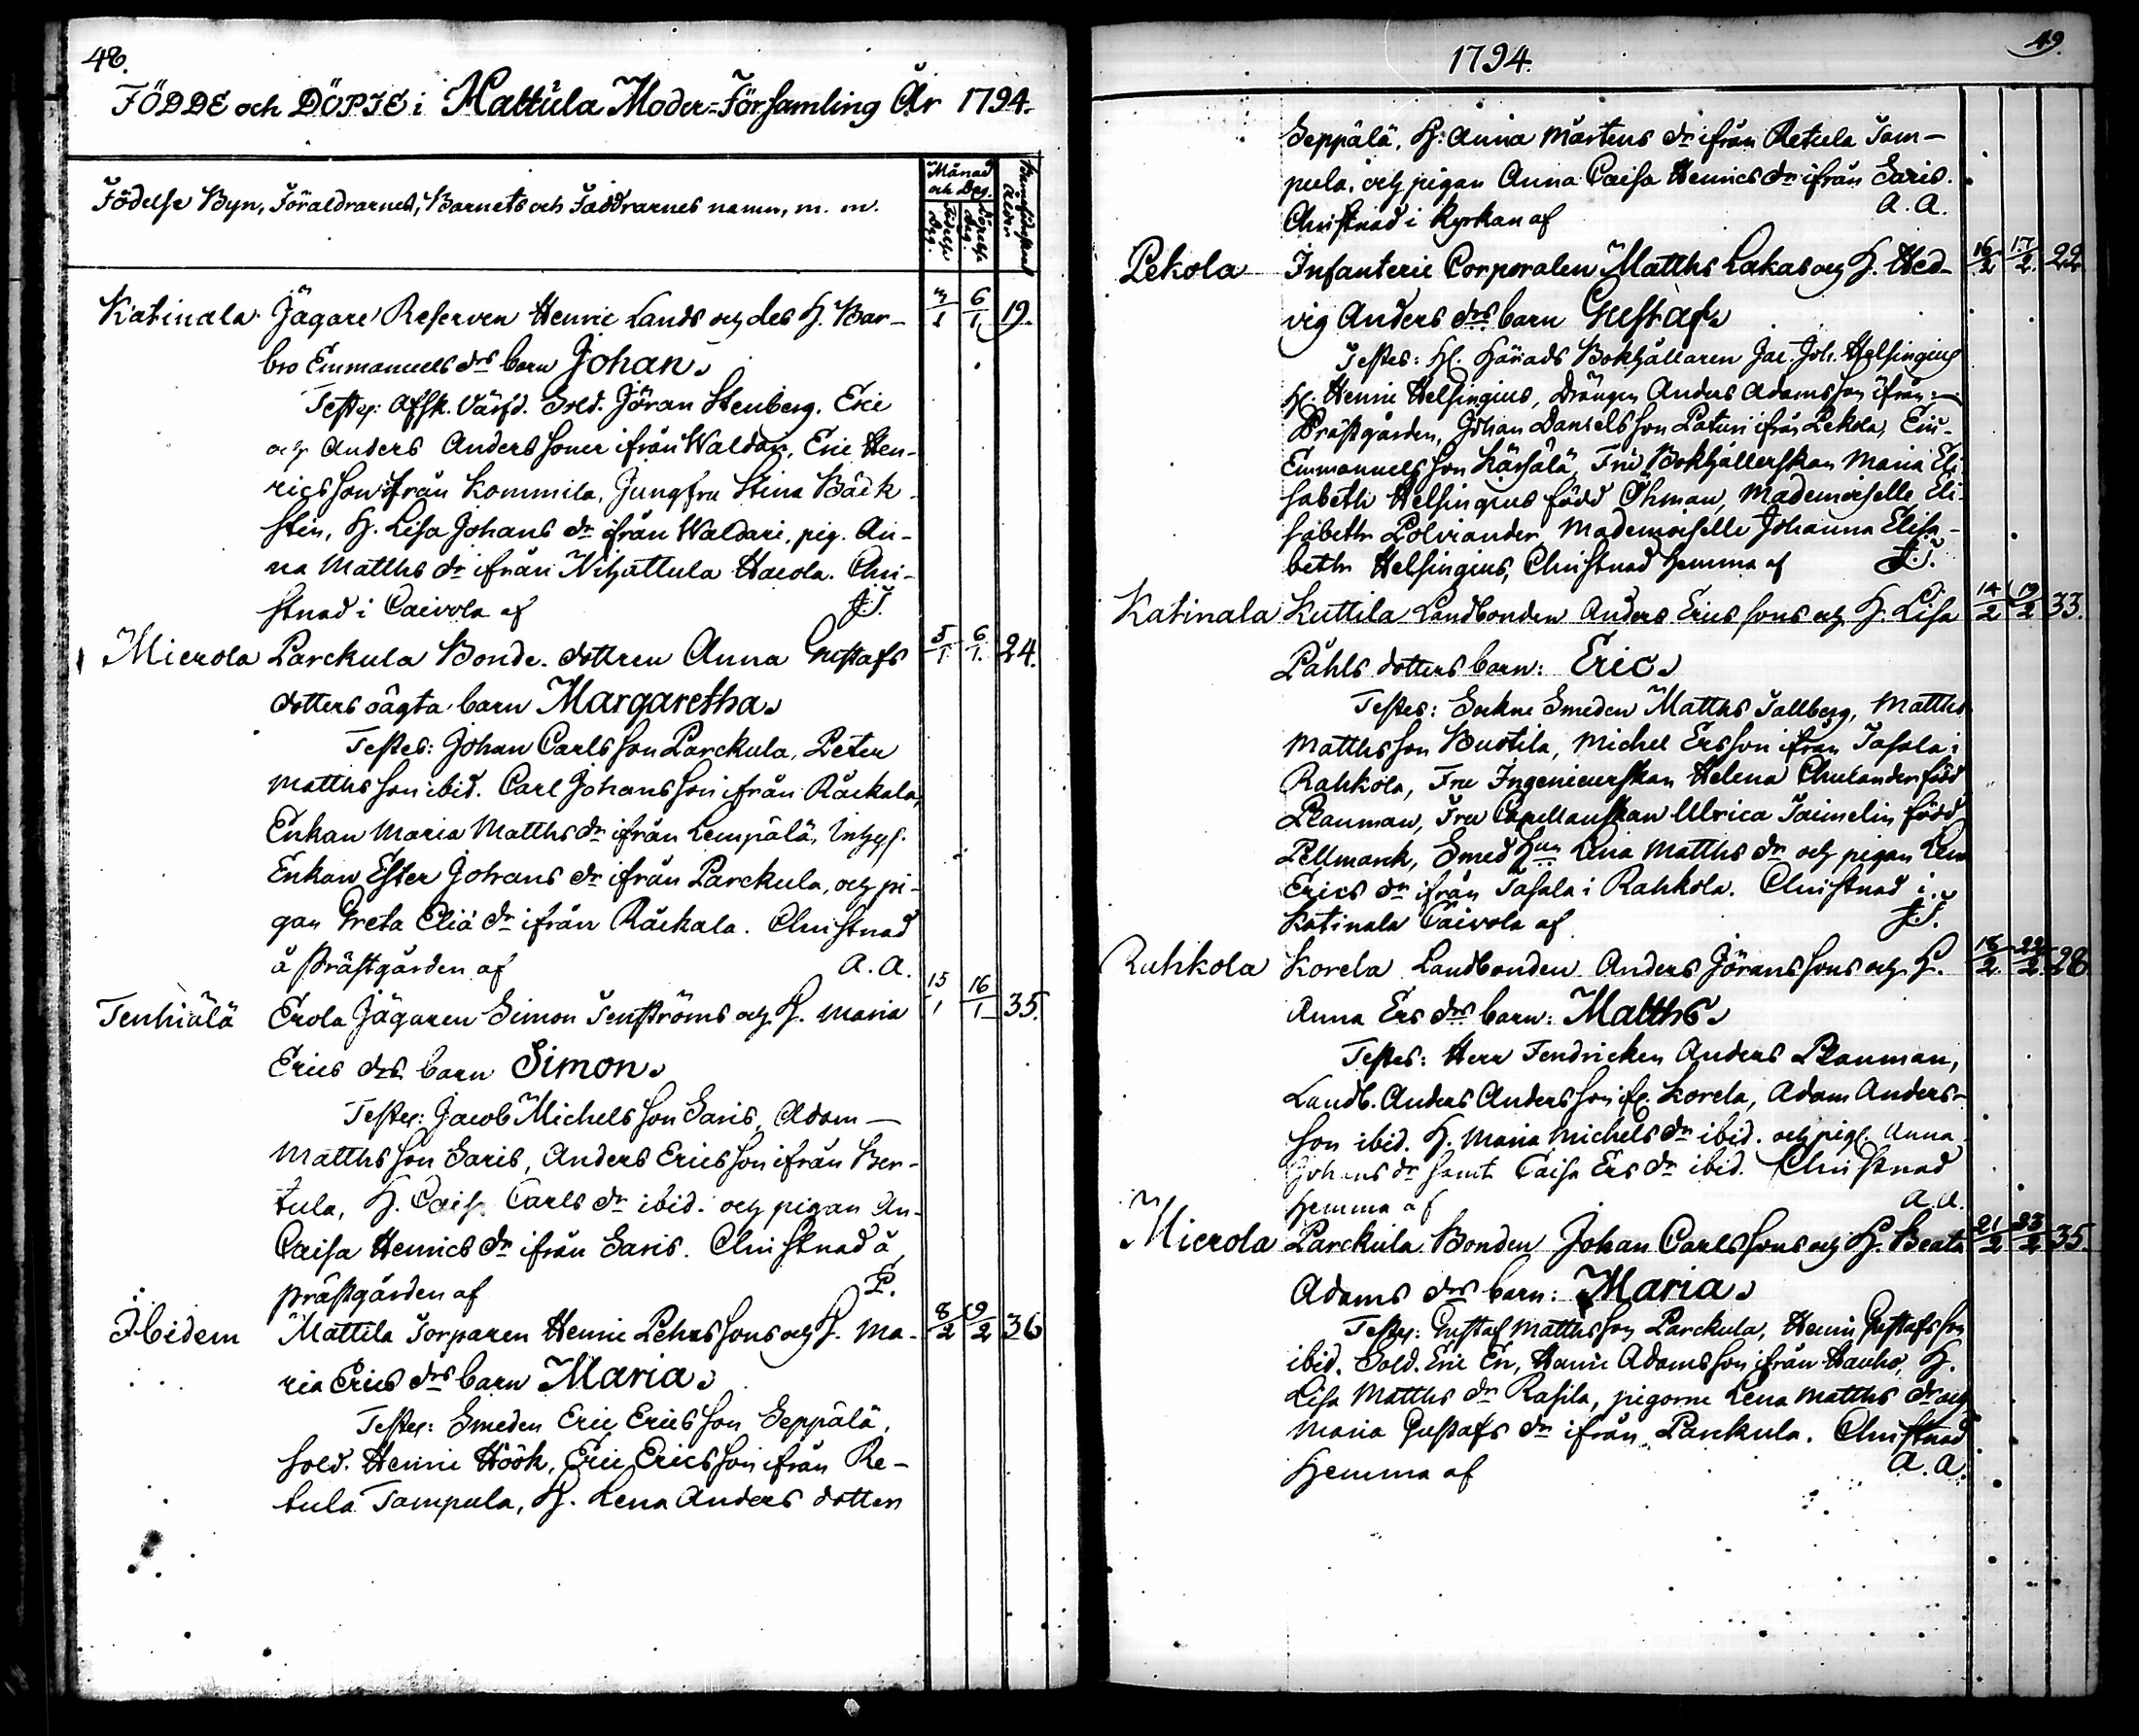 48.
FÖDDE och DÖPTE i Hattula Moder-Församling År 1794.
Födelse Byn, Föräldrarnes, Barnets och Faddrarnes namn, m. m.
Månad och Dag.
Födelse Dag.
Döpelse Dag.
Ålder
Katinala Jägare Reserven Henric Lands och des H. Bar- 3/1 6/1 19.
bro Emmanuels drs barn Johan.
Testes: Afsk. Värfd. Sold. Jöran Stenberg. Eric
och Anders Anders Söner ifrån Waldari, Eric Hen-
rics son ifrån Kommila, Jungfru Stina Bäck
stén, H. Lisa Johans dr ifrån Waldari, pig. An-
na Matths dr ifrån Nihattula Hacola. Chri-
stnad i Caivola af J.T.
Mierola Parckula Bonde dottren Anna Gustafs 5/1 6/1. 24.
dotters oägta barn Margaretha.
Testes: Johan Carls son Parckula, Peter
Matths son ibid. Carl Johans son ifrån Räckala,
Enkan Maria Matths dr ifrån Lempälä, Inhys.
Enkan Ester Johans dr ifrån Parckula, och pi-
gan Greta Eliä dr ifrån Räckala. Christnad
å Prästgården af A. A.
Tenhiälä Erola Jägaren Simon Tenströms och H. Maria 15/1 16/1 35.
Erics drs barn Simon.
Testes: Jacob Michels son Saris, Adam
Matths son Saris, Anders Erics son ifrån Ber-
tula, H. Caisa Carls dr ibid. och pigan An-
Caisa Henrics dr ifrån Saris. Christnad å
prästgården af P.
Ibidem Mattila Torparen Henric Pehrs sons och H. Ma- 8/2 9/2 36
ria Erics drs barn Maria.
Testes: Smeden Eric Erics son Seppälä,
Sold. Henric Höök, Eric Erics son ifrån Re-
tula Tampula, H. Lena Anders dotter
1794.
49.
Seppälä, H. Anna Mårtens dr ifrån Retula Tam-
pula, och pigan Anna Caisa Henrics dr ifrån Saris.
Christnad i Kyrkan af A. A.
Pekola Infanterie Corporalen Matths Lakas och H. Hed- 16/2 17/2. 22.
vig Anders drs barn Gustaf.
Testes: Hr. Härads Bokhållaren Jac. Joh. Helsingius
Hr. Henric Helsingius, Drängen Anders Adams son ifrån
Prästgården, Johan Daniels son Paturi ifrån Pekola, Eric
Emmanuels son Kärsälä, Fru Bokhållerskan Maria Eli
sabeth Helsingius född Öhman, Mademoiselle Eli-
sabeth Polviander, Mademoiselle Johanna Elisa-
beth Helsingius, Christnad hemma af J.T.
Katinala Kuttila Landbonden Anders Erics sons och H. Lisa 14/2 19/2 33.
Påhls dotters barn: Eric.
Testes: Sockne Smeden Matths Tallberg, Matths
Matths son Bustila, Michel Ersson ifrån Tasala i
Rahkola, Fru Ingenieurskan Helena Chulander född
Plauman, Fru Capellanskan Ulrica Taimelin född
Pellmarck, Smed Hun Lena Matths dr och pigan Lena
Erics dr ifrån Tasala i Rahkola. Christnad i
Katinala Caivola af J.T.
Ruhkola Korela Landbonden Anders Jörans sons och H. 18/2. 22/2. 28
Anna Ers drs barn: Matths.
Testes: Herr Fendricken Anders Plauman,
Landb. Anders Anders son ifr. Korela, Adam Anders-
son ibid. H. Maria Michels dr ibid. och pig. Anna
Johans dr samt Caisa Ers dr ibid. Christnad
hemma af A. A.
Mierola Parckula Bonden Johan Carls sons och H. Beata 21/2 23/2 35.
Adams drs barn: Maria.
Testes: Gustaf Matths son Parckula, Henric Gustafs son
ibid. Sold. Eric En, Henric Adams son ifrån Hauho, H.
Lisa Matths dr Rasila, pigorne Lena Matths dr och
Maria Gustafs dr ifrån Parckula. Christnad
hemma af A. A.